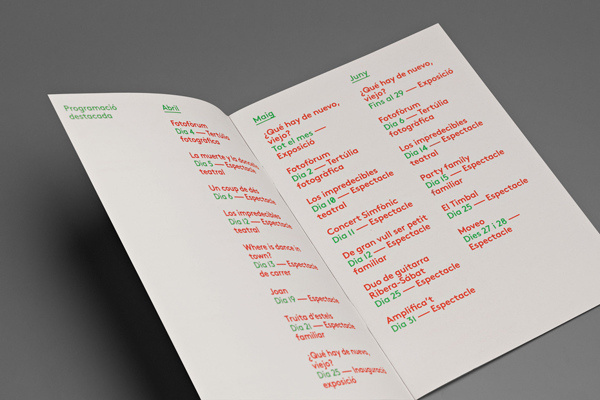 Programació
destacada
Abril
Fotofòrum
Dia 4 — Tertúlia
fotogràfica
La muerte y la doncella
Dia 5 — Espectacle
teatral
Un coup de dés
Dia 6 — Espectacle
Los impredecibles
Dia 12 — Espectacle
teatral
Where is dance in
town?
Dia 13 — Espectacle
de carrer
Joan
Dia 19 — Espectacle
Truita d'estels
Dia 21 — Espectacle
familiar
¿Qué hay de nuevo,
viejo?
Dia 25 — Inauguració
exposició
Maig
¿Qué hay de nuevo,
viejo?
Tot el mes —
Exposició
Fotofòrum
Dia 2 — Tertúlia
fotogràfica
Los impredecibles
Dia 10 — Espectacle
teatral
Concert Simfònic
Dia 11 — Espectacle
De gran vull ser petit
Dia 12 — Espectacle
familiar
Duo de guitarra
Ribera-Sábat
Dia 25 — Espectacle
Amplifica't
Dia 31 — Espectacle
Juny
¿Qué hay de nuevo,
viejo?
Fins al 29 — Exposició
Fotofòrum
Dia 6 — Tertúlia
fotogràfica
Los impredecibles
Dia 14 — Espectacle
teatral
Party family
Dia 15 — Espectacle
familiar
El Timbal
Dia 25 — Espectacle
Moveo
Dies 27 i 28 —
Espectacle